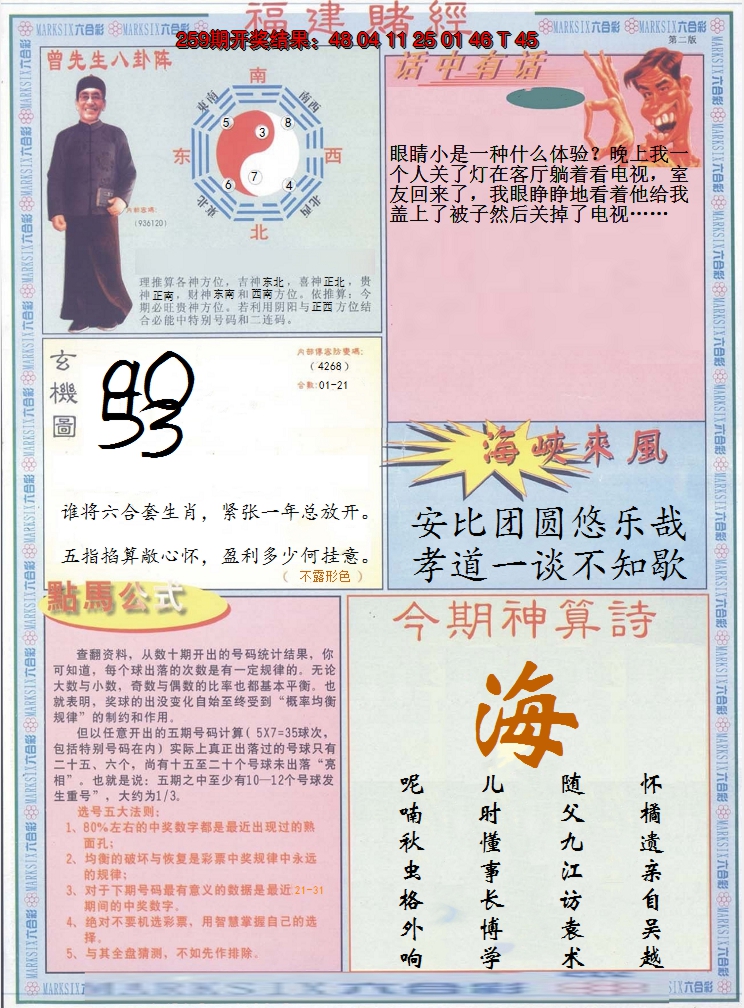 福建賭經
259期开奖结果：48 04 11 25 01 46 T 45
第二版
MARKSIX六合彩
曾先生八卦阵
南
东南
西南
5
3
8
东
西
6
7
4
东北
西北
北
内部密碼:
(936120)
理推算各神方位，吉神东北，喜神正北，贵
神正南，财神东南和西南方位。依推算：今
期必旺贵神方位。若利用阴阳与正西方位结
合必能中特别号码和二连码。
话中有话
眼睛小是一种什么体验？晚上我一
个人关了灯在客厅躺着看电视，室
友回来了，我眼睁睁地看着他给我
盖上了被子然后关掉了电视……
玄機圖
内部傳密除密碼:
(4268)
合數:01-21
谁将六合套生肖，紧张一年总放开。
五指掐算敞心怀，盈利多少何挂意。
（ 不露形色 ）
海峽來風
安比团圆悠乐哉
孝道一谈不知歇
點馬公式
查翻资料，从数十期开出的号码统计结果，你
可知道，每个球出落的次数是有一定规律的。无论
大数与小数，奇数与偶数的比率也都基本平衡。也
就表明，奖球的出没变化自始至终受到“概率均衡
规律”的制约和作用。
但以任意开出的五期号码计算( 5X7=35球次，
包括特别号码在内) 实际上真正出落过的号球只有
二十五、六个，尚有十五至二十个号球未出落“亮
相”。也就是说：五期之中至少有10—12个号球发
生重号”，大约为1/3。
选号五大法则:
1、80%左右的中奖数字都是最近出现过的熟
面孔;
2、均衡的破坏与恢复是彩票中奖规律中永远
的规律;
3、对于下期号码最有意义的数据是最近21-31
期间的中奖数字。
4、绝对不要机选彩票，用智慧掌握自己的选
择。
5、与其全盘猜测，不如先作排除。
今期神算詩
海
呢喃秋虫格外响
儿时懂事长博学
随父九江访袁术
怀橘遗亲自吴越